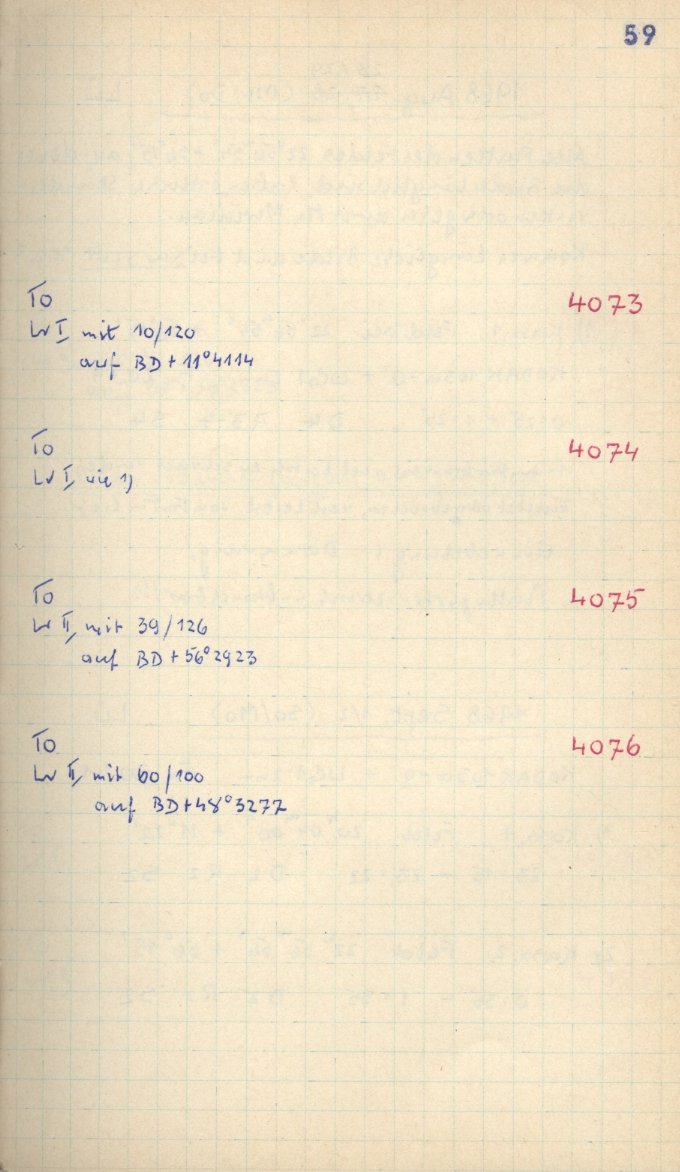 59
To 4073
Lw I, mit 10/120
auf BD+11°4114
To 4074
Lw I, wie 1)
To 4075
Lw II, mit 39/126
auf BD+56°2923
To 4076
Lw II, mit 60/100
auf BD+48°3277